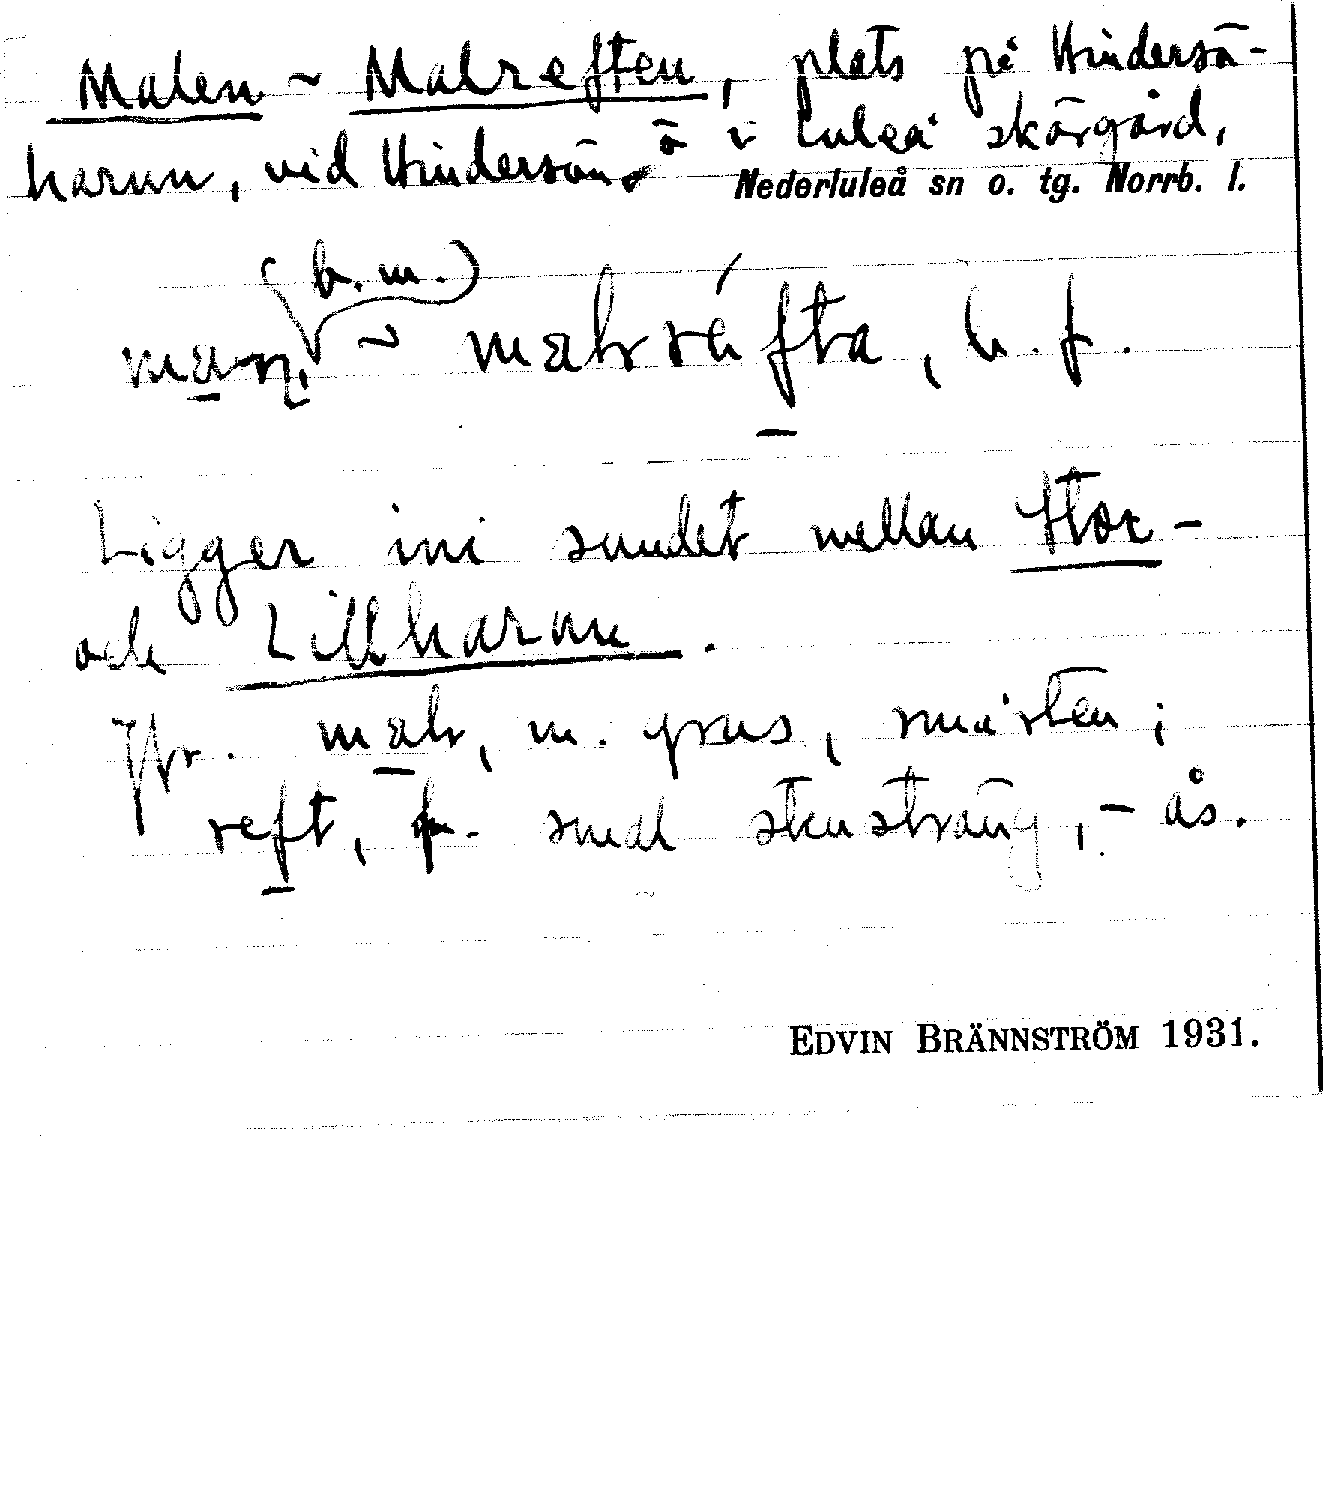 Malen ~ Malreften, plats på Hindersö-
harun, vid Hindersön, ö i Luleå skärgård,
Nederluleå sn o. tg. Norrb. l.
(b.m.)
~ , b. f.
Ligger ini sundet mellan Stor-
och Lillharun.
Jfr. mal, m. grus, småsten;
reft, f. smal stensträng, - ås.
EDVIN BRÄNNSTRÖM 1931.